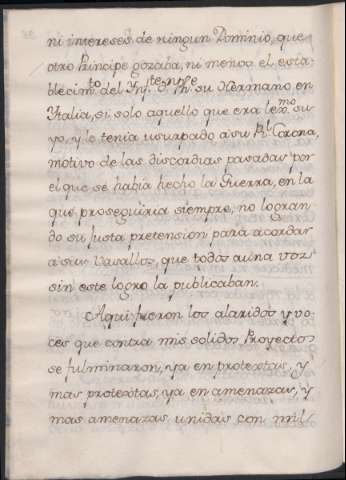 ni intereses de ningun Dominio, que
otro Principe gozaba, ni menos el esta-
blecim.to del Ynf.te D.n Ph.e su Hermano en
Ytalia, si solo aquello que era lex.mo su-
yo, y lo tenia usurpado à su R.l Corona,
motivo de las discordias pasadas por
el que se habia hecho la Guerra, en la
que proseguiria siempre, no logran-
do su justa pretension para acordar
à sus Vasallos, que todos a una voz
sin este logro la publicaban.
Aqui fueron los alaridos y vo-
ces que contra mis solidos Proyectos
se fulminaron, ya en protextas, y
mas protextas, ya en amenazas, y
mas amenazas, unidas con mil